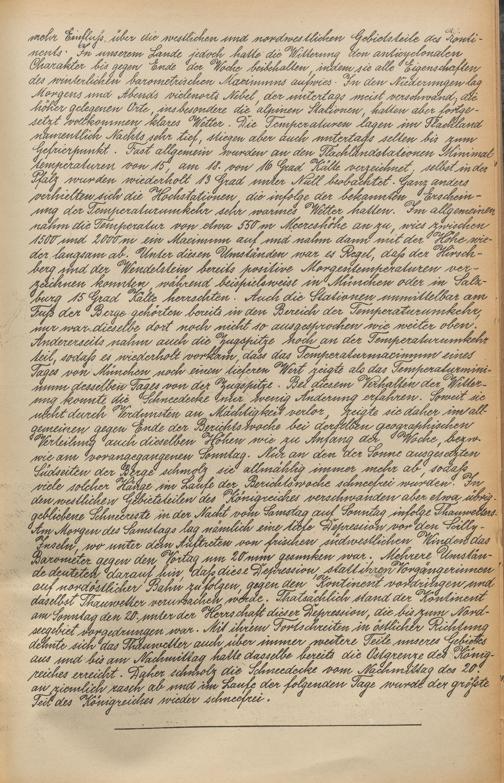 mehr Einfluß über die westlichen und nordwestlichen Gebietsteile des Konti-
nents. In unserem Lande jedoch hatte die Witterung den anticyclonalen
Charakter bis gegen Ende der Woche beibehalten, indem sie alle Eigenschaften
des winterlichen barometrischen Maximums aufwies. In den Niederungen lag
Morgens und Abends vielenorts Nebel, der untertags meist verschwand, die
höher gelegenen Orte, insbesondere die alpinen Stationen, hatten aber fortge-
setzt vollkommen klares Wetter. Die Temperaturen lagen im Flachland
namentlich Nachts sehr tief, stiegen aber auch untertags selten bis zum
Gefrierpunkt. Fast allgemein wurden an den Flachlandstationen Minimal
temperaturen von 15, am 18. von 16 Grad Kälte verzeichnet, selbst in der
Pfalz wurden wiederholt 13 Grad unter Null beobachtet. Ganz anders
verhielten sich die Hochstationen, die infolge der bekannten Erschein-
ung der Temperaturumkehr sehr warmes Wetter hatten. Im allgemeinen
nahm die Temperatur von etwa 550 m Meereshöhe an zu, wies zwischen
1500 und 2000 m ein Maximum auf und nahm dann mit der Höhe wie-
der langsam ab. Unter diesen Umständen war es Regel, daß der Hirsch-
berg und der Wendelstein bereits positive Morgentemperaturen ver-
zeichnen konnten, während beispielsweise in München oder in Salz-
burg 15 Grad Kälte herrschten. Auch die Stationen unmittelbar am
Fuß der Berge gehörten bereits in den Bereich der Temperaturumkehr,
nur war dieselbe dort noch nicht so ausgesprochen wie weiter oben.
Andererseits nahm auch die Zugspitze noch an der Temperaturumkehr
teil, sodaß es wiederholt vorkam, dass das Temperaturmaximum eines
Tages von München noch einen tieferen Wert zeigte als das Temperaturmini-
mum desselben Tages von der Zugspitze. Bei diesem Verhalten der Witter-
ung konnte die Schneedecke nur wenig Änderung erfahren. Soweit sie
nicht durch Verdunsten an Mächtigkeit verlor, zeigte sie daher im all-
gemeinen gegen Ende der Berichtswoche bei derselben geographischen
Verteilung auch dieselben Höhen wie zu Anfang der Woche, bezw.
wie am vorangegangenen Sonntag. Nur an den der Sonne ausgesetzten
Südseiten der Berge schmolz sie allmählig immer mehr ab, sodaß
viele solcher Hänge im Laufe der Berichtswoche schneefrei wurden. In
den westlichen Gebietsteilen des Königreiches verschwanden aber etwa übrig-
gebliebene Schneereste in der Nacht vom Samstag auf Sonntag infolge Thauwetters.
Am Morgen des Samstags lag nämlich eine tiefe Depression vor den Scilly-
Inseln, wo unter dem Auftreten von frischen südwestlichen Winden das
Barometer gegen den Vortag um 20 mm gesunken war. Mehrere Umstän-
de deuteten darauf hin, daß diese Depression, statt ihren Vorgängerinnen
auf nordöstlicher Bahn zu folgen, gegen den Kontinent vordringen und
daselbst Thauwetter verursachen werde. Thatsächlich stand der Kontinent
am Sonntag den 20. unter der Herrschaft dieser Depression, die bis zum Nord-
seegebiet vorgedrungen war. Mit ihrem Fortschreiten in östlicher Richtung
dehnte sich das Thauwetter auch über immer weitere Teile unseres Gebietes
aus und bis am Nachmittag hatte dasselbe bereits die Ostgrenze des König-
reiches erreicht. Daher schmolz die Schneedecke vom Nachmittag des 20.
an ziemlich rasch ab und im Laufe der folgenden Tage wurde der größte
Teil des Königreiches wieder schneefrei.